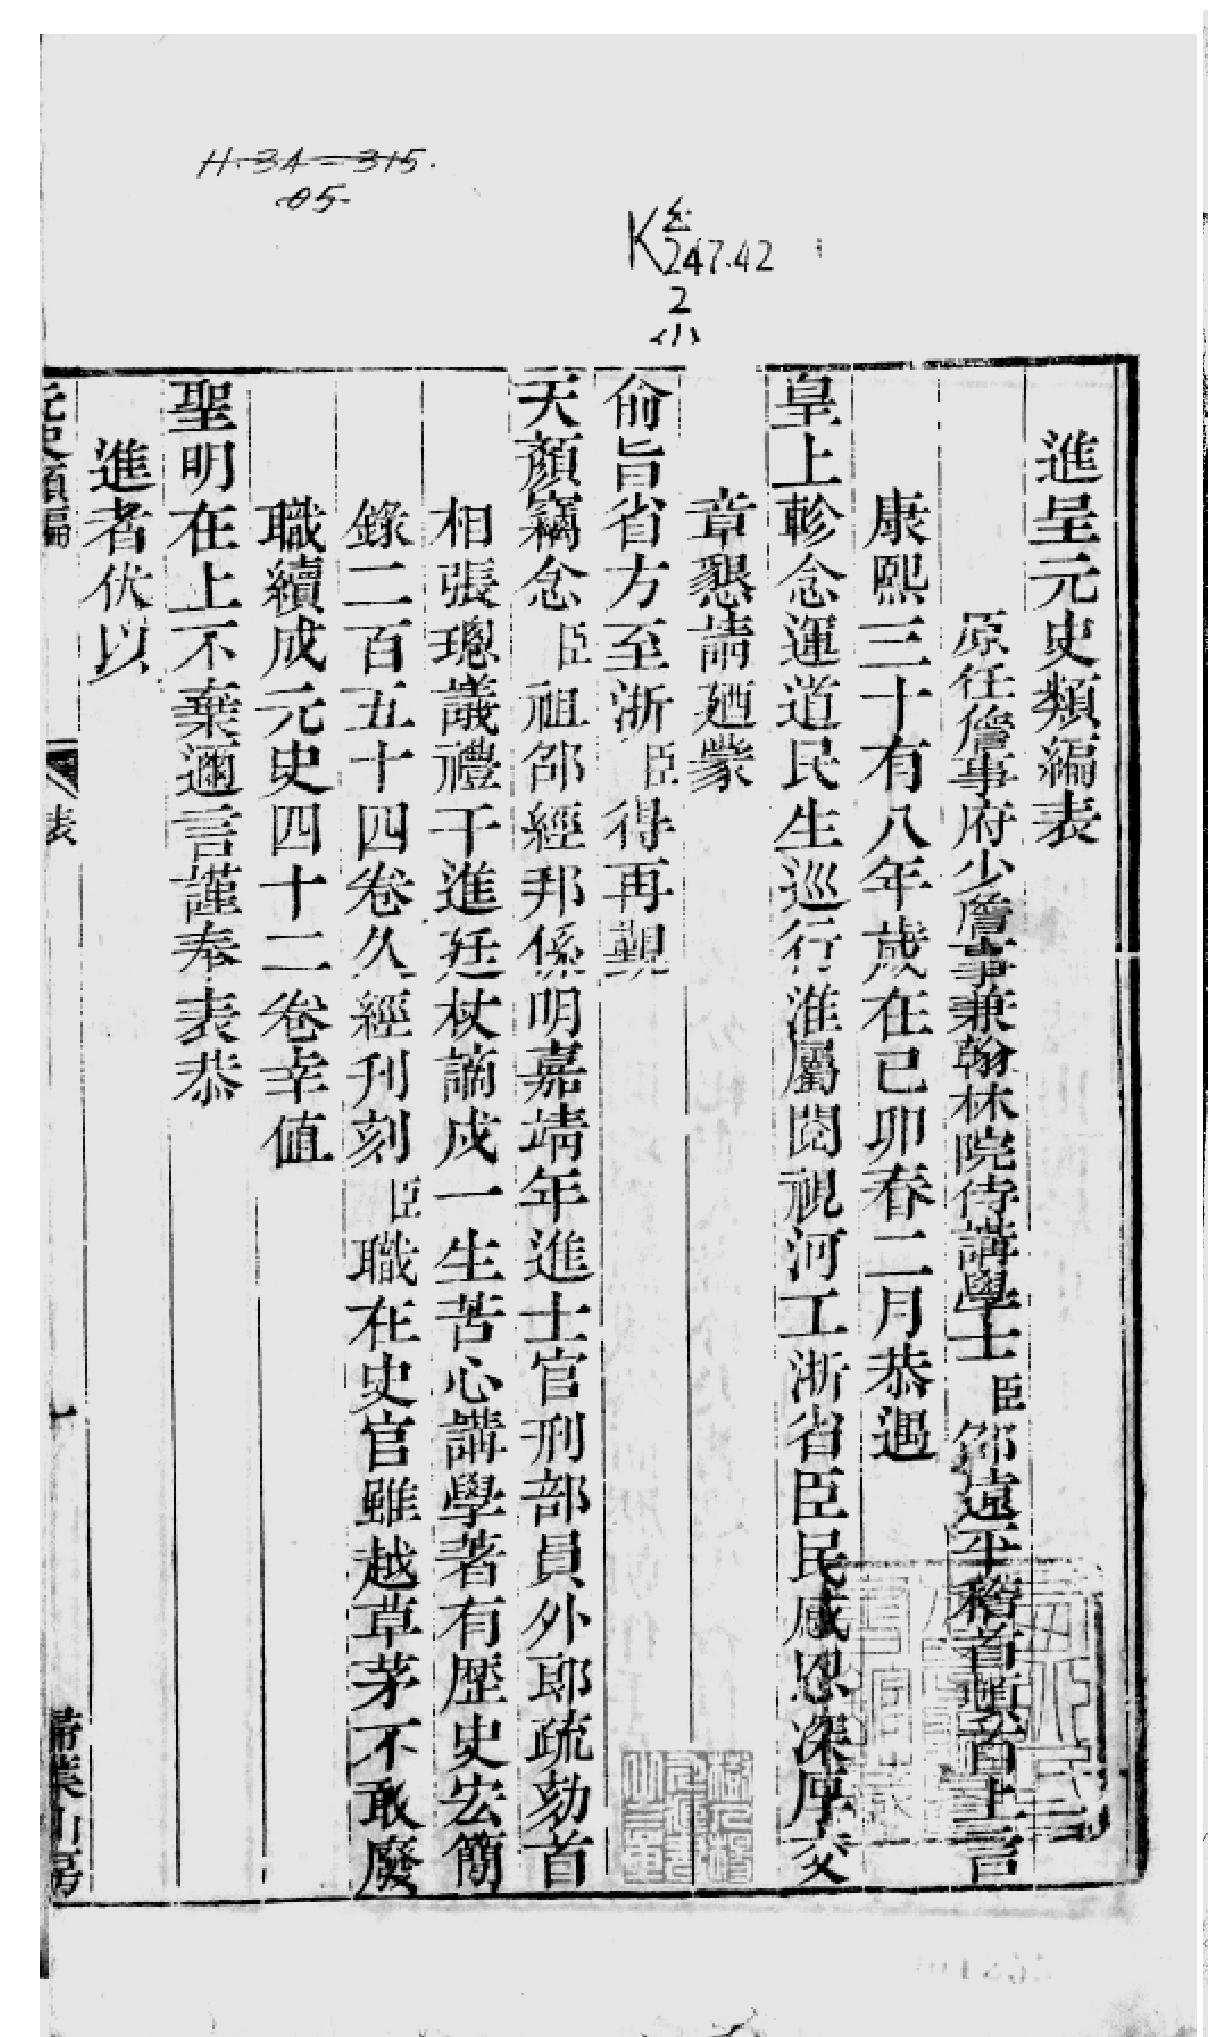 H.34-315.
05-
K
247.42
2
小
進呈元史類編表
原任詹事府少詹事兼翰林院侍講學士臣邵遠平稽首頓首上言
康熙三十有八年歲在己卯春二月恭遇
皇上軫念運道民生巡行淮屬閱視河工浙省臣民感恩深厚交
章懇請廼蒙
俞旨省方至浙臣得再覲
天顏竊念臣祖邵經邦係明嘉靖年進士官刑部員外郎疏劾首
相張璁議禮干進廷杖謫戍一生苦心講學著有歷史宏簡
錄二百五十四卷久經刊刻臣職在史官雖越草茅不敢廢
職續成元史四十二卷幸值
聖明在上不棄邇言謹奉表恭
進者伏以
元史類編
表
一
掃葉山房